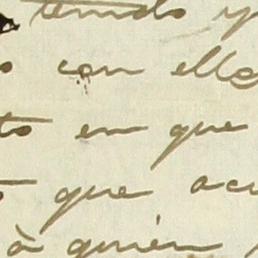 tenido y
con ella
to en que
que acu
à quien